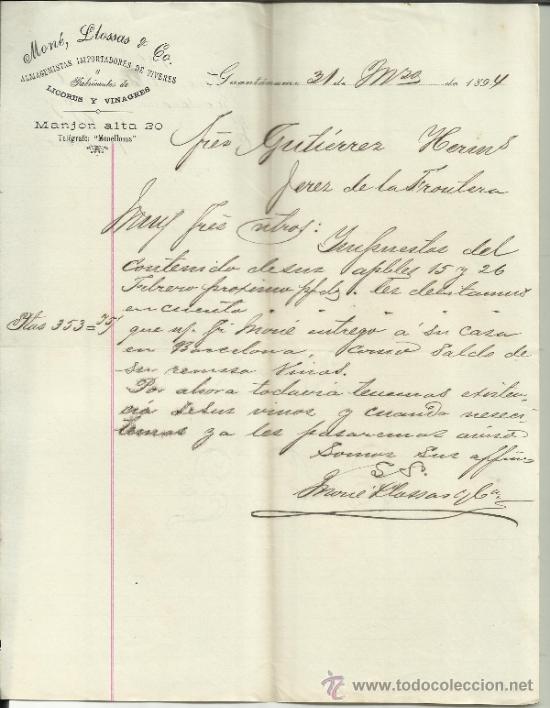 Moné, Llossas y Co.
ALMACENISTAS IMPORTADORES DE VIVERES
y
Fabricantes de
LICORES Y VINAGRES
Manjon alta 20
Telégrafo: "Monellosas"
Guantánamo 31 de Mzo de 1894
Sres Gutiérrez Hermˢ
Jerez de la Frontera
Muy Sres ntros:
Impuestos del
contenido de sus apbles 15 y 26
Febrero proximo ppdo les dentamos
en cuenta
Ptas 353=75/
que n/ Sr Moné entregó a su casa
en Barcelona, como saldo de
su remesa Vinos.
Por ahora todavia tenemas existen-
cia de sus vinos y cuando necesi-
temos ya les pasaremos aviso
Somos sus affmos
S. S.
Moné Llossas y Cia
todocoleccion
www.todocoleccion.net